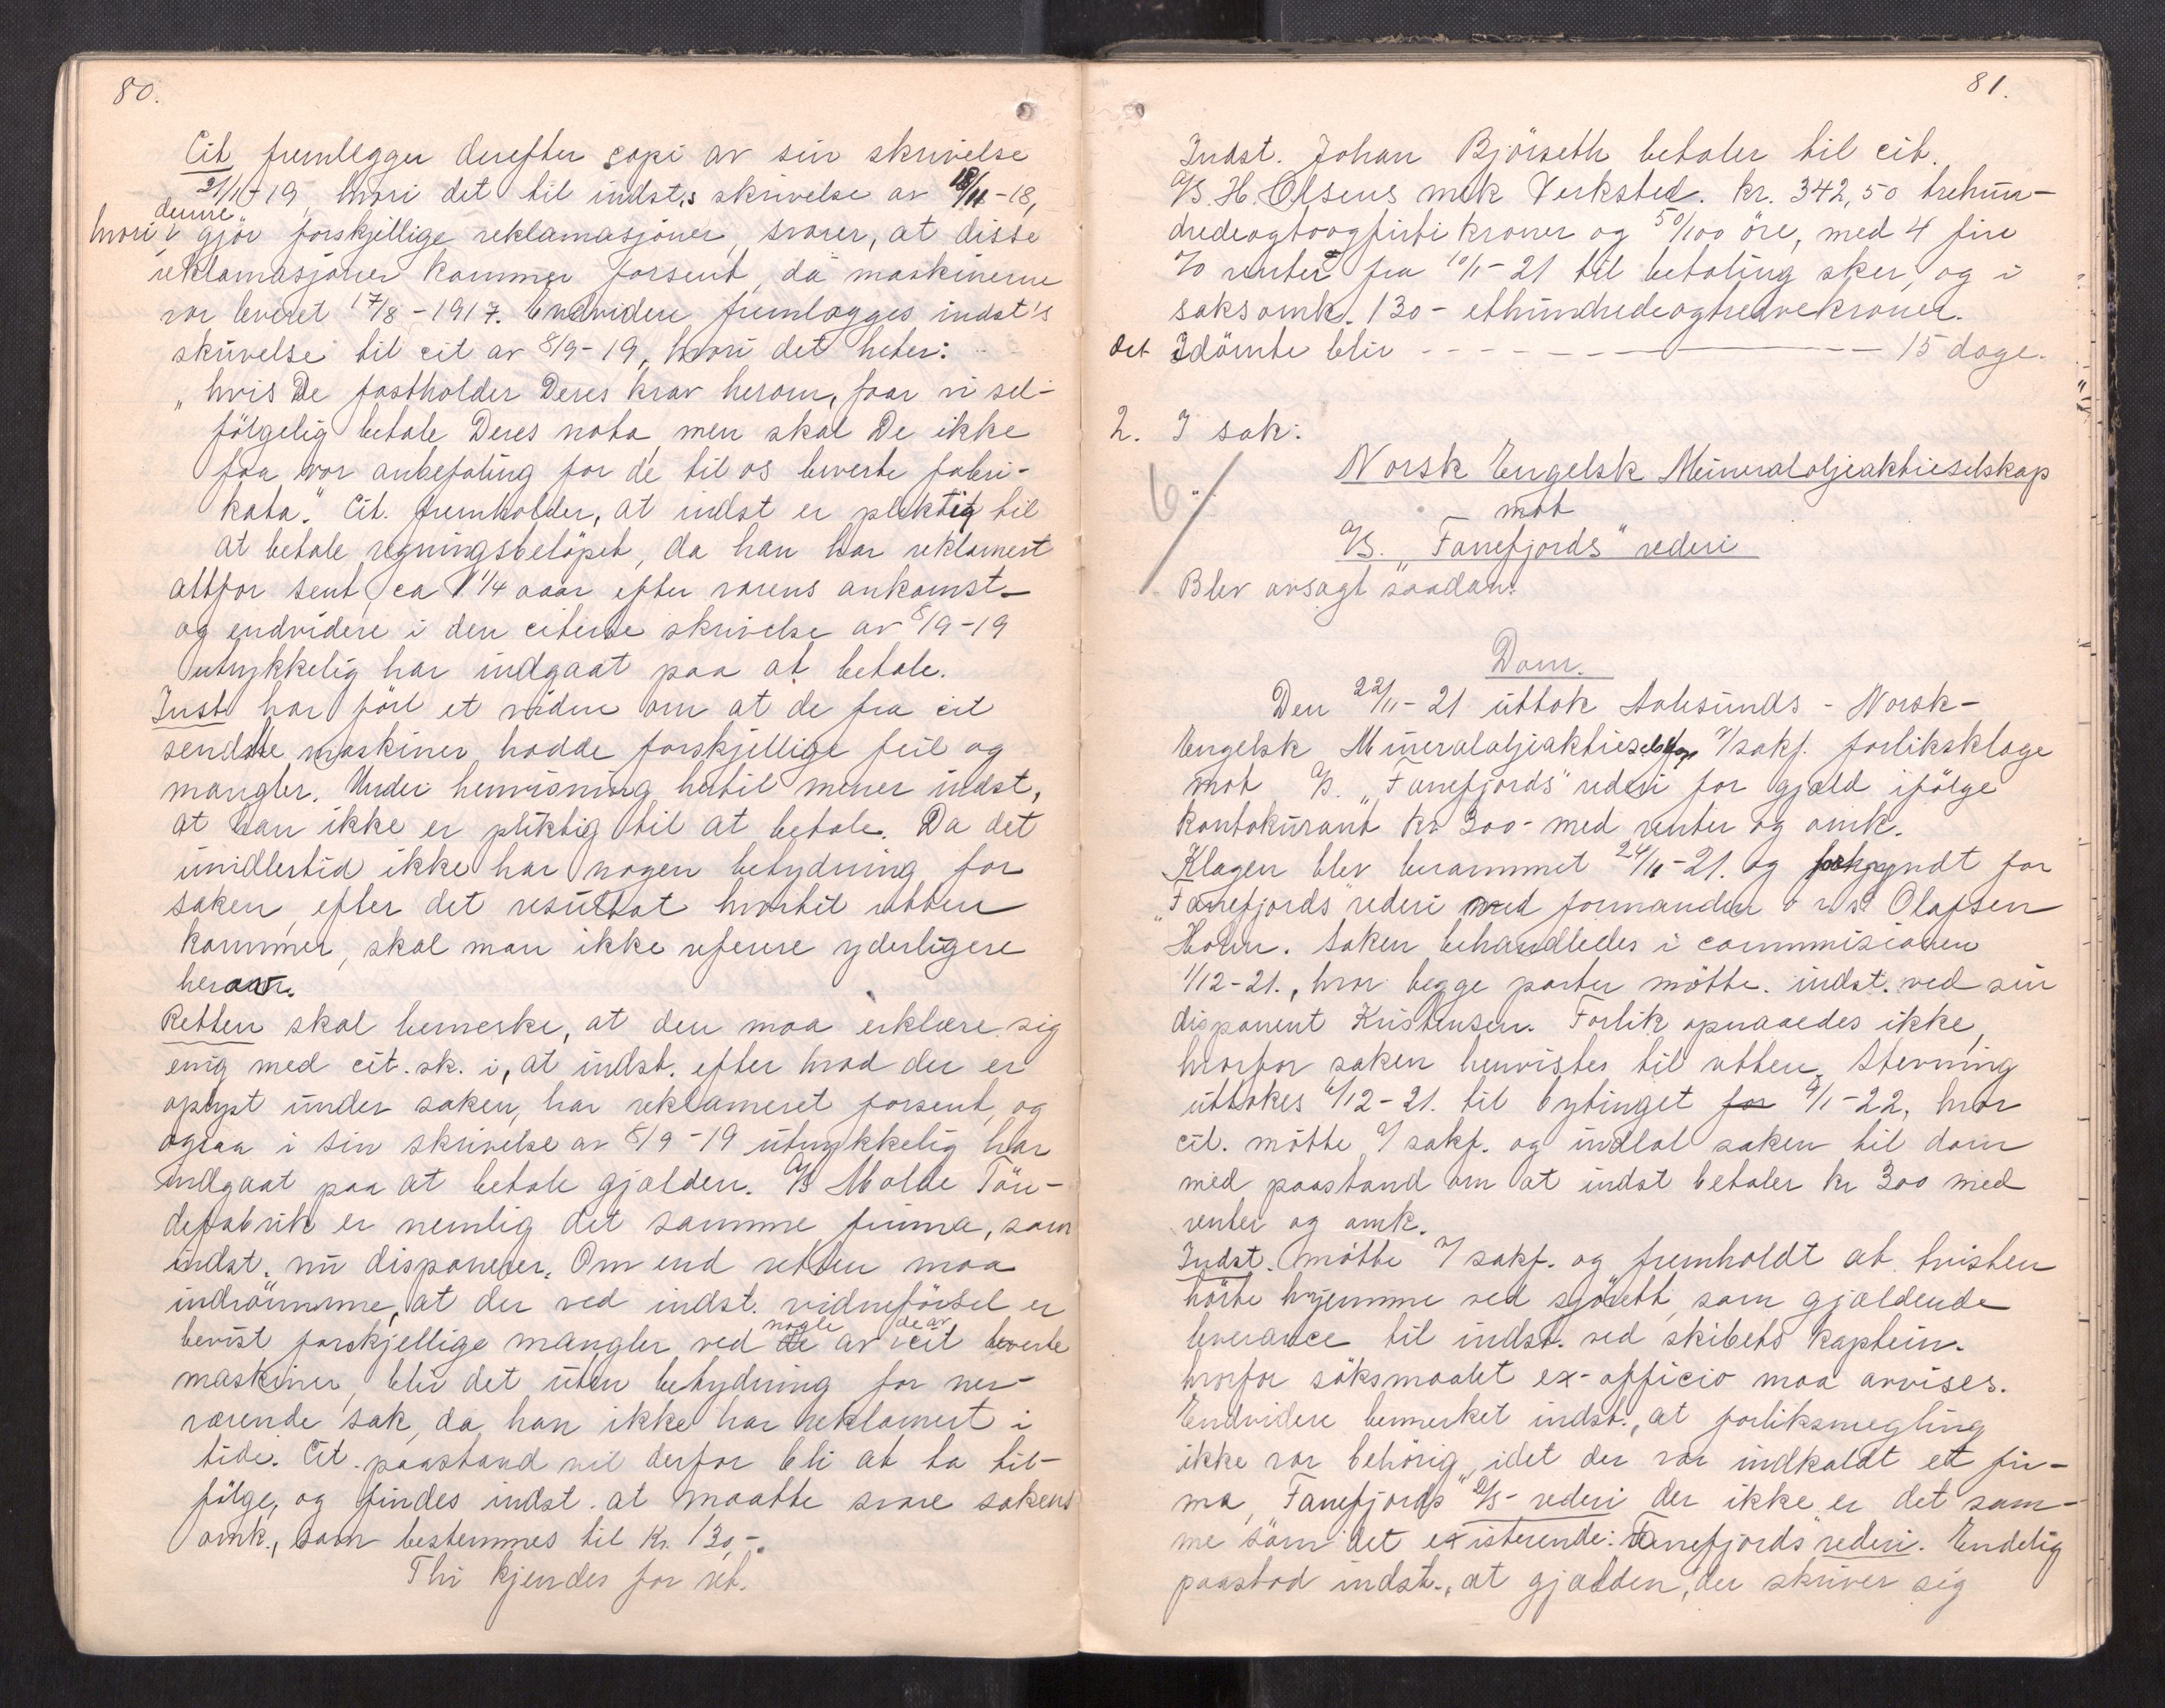 80.
Cit fremlegger derefter copi av sin skrivelse
21/1-19, hvori det til indst.s skrivelse av 18/11-18,
hvori denne gjör forskjellige reklamasjoner, svarer, at disse
reklamasjoner kommer forsent, da maskinerne
var leveret 17/8-1917. Endvidere fremlægges indst's
skrivelse til cit av 8/9-19, hvori det heter:
„hvis De fastholder Deres krav herom, faar vi sel-
fölgelig betale Deres nota, men skal De ikke
faa vor anbefaling for de til os leverte fabri-
kata." Cit. fremholder, at indst er pliktig til
at betale regningsbelöpet, da han har reklamert
altfor sent, ca 1 1/4 aar efter varens ankomst –
og endvidere i den citerte skrivelse av 8/9-19
uttrykkelig har indgaat paa at betale.
Indst har fört et vidne om at de fra cit
sendte maskiner hadde forskjellige feil og
mangler. Under henvisning hertil mener indst,
at han ikke er pliktig til at betale. Da det
imidlertid ikke har nogen betydning for
saken, efter det resultat hvortil retten
kommer, skal man ikke referere yderligere
herom.
Retten skal bemerke, at den maa erklære sig
enig med cit. sk. i, at indst. efter hvad der er
oplyst under saken, har reklameret forsent, og
ogsaa i sin skrivelse av 8/9-19 utrykkelig har
indgaat paa at betale gjælden. A/S Molde Tön-
defabrik er nemlig det samme firma, som
indst. nu disponerer. Om end retten maa
indrömme, at der ved indst. vidneförsel er
bevist forskjellige mangler ved nogle de av cit leverte
maskiner, blir det uten betydning for ner-
værende sak, da han ikke har reklamert i
tide. Cit. paastand vil derfor bli at ta til-
fölge, og findes indst. at maatte svare sakens
omk., som bestemmes til Kr. 130,-.
Thi kjendes for ret.
81.
Indst. Johan Björseth betaler til cit.
A/S. H. Olsens mek Verksted. kr. 342,50 trehun-
dredeogtoogfirti kroner og 50/100 öre, med 4 fire
% renter fra 10/1-21 til betaling sker, og i
saksomk. 130 - ethundredeogtredvekroner.
Det Idömte blir - - - - - - 15 dage.
2. I sak:
6
Norsk Engelsk Mineraloljeaktieselskap
mot
A/S. "Fanefjords" rederi
Blev avsagt saadan:
Dom.
Den 22/11-21 uttok Aalesunds - Norsk-
Engelsk Mineraloljeaktieselskap v/sakf. forliksklage
mot A/S. „Fanefjords" rederi for gjæld ifölge
kontokurant kr 300- med renter og omk.
Klagen blev berammet 24/11-21. og forkyndt for
„Fanefjords" rederi ved formanden Olafsen
Holm. Saken behandledes i commisionen
1/12-21., hvor begge parter mötte. indst. ved sin
disponent Kristensen. Forlik opnaaedes ikke,
hvorfor saken henvistes til retten. Stevning
uttokes /12-21. til bytinget for /1-22, hvor
cit. mötte v/sakf. og indlot saken til dom
med paastand om at indst betaler kr 300 med
renter og omk.
Indst. mötte v/sakf. og fremholdt at tvisten
hörte hjemme ved sjörett, som gjældende
leverance til indst. ved skibets kaptein.
hvorfor söksmaalet ex-officio maa avvises.
Endvidere bemerket indst., at forliksmegling
ikke var behörig, idet der var indkaldt et fir-
ma, „Fanefjords" A/S- rederi der ikke er det sam-
me som det existerende: Fanefjords rederi. Endelig
paastod indst., at gjælden, der skriver sig